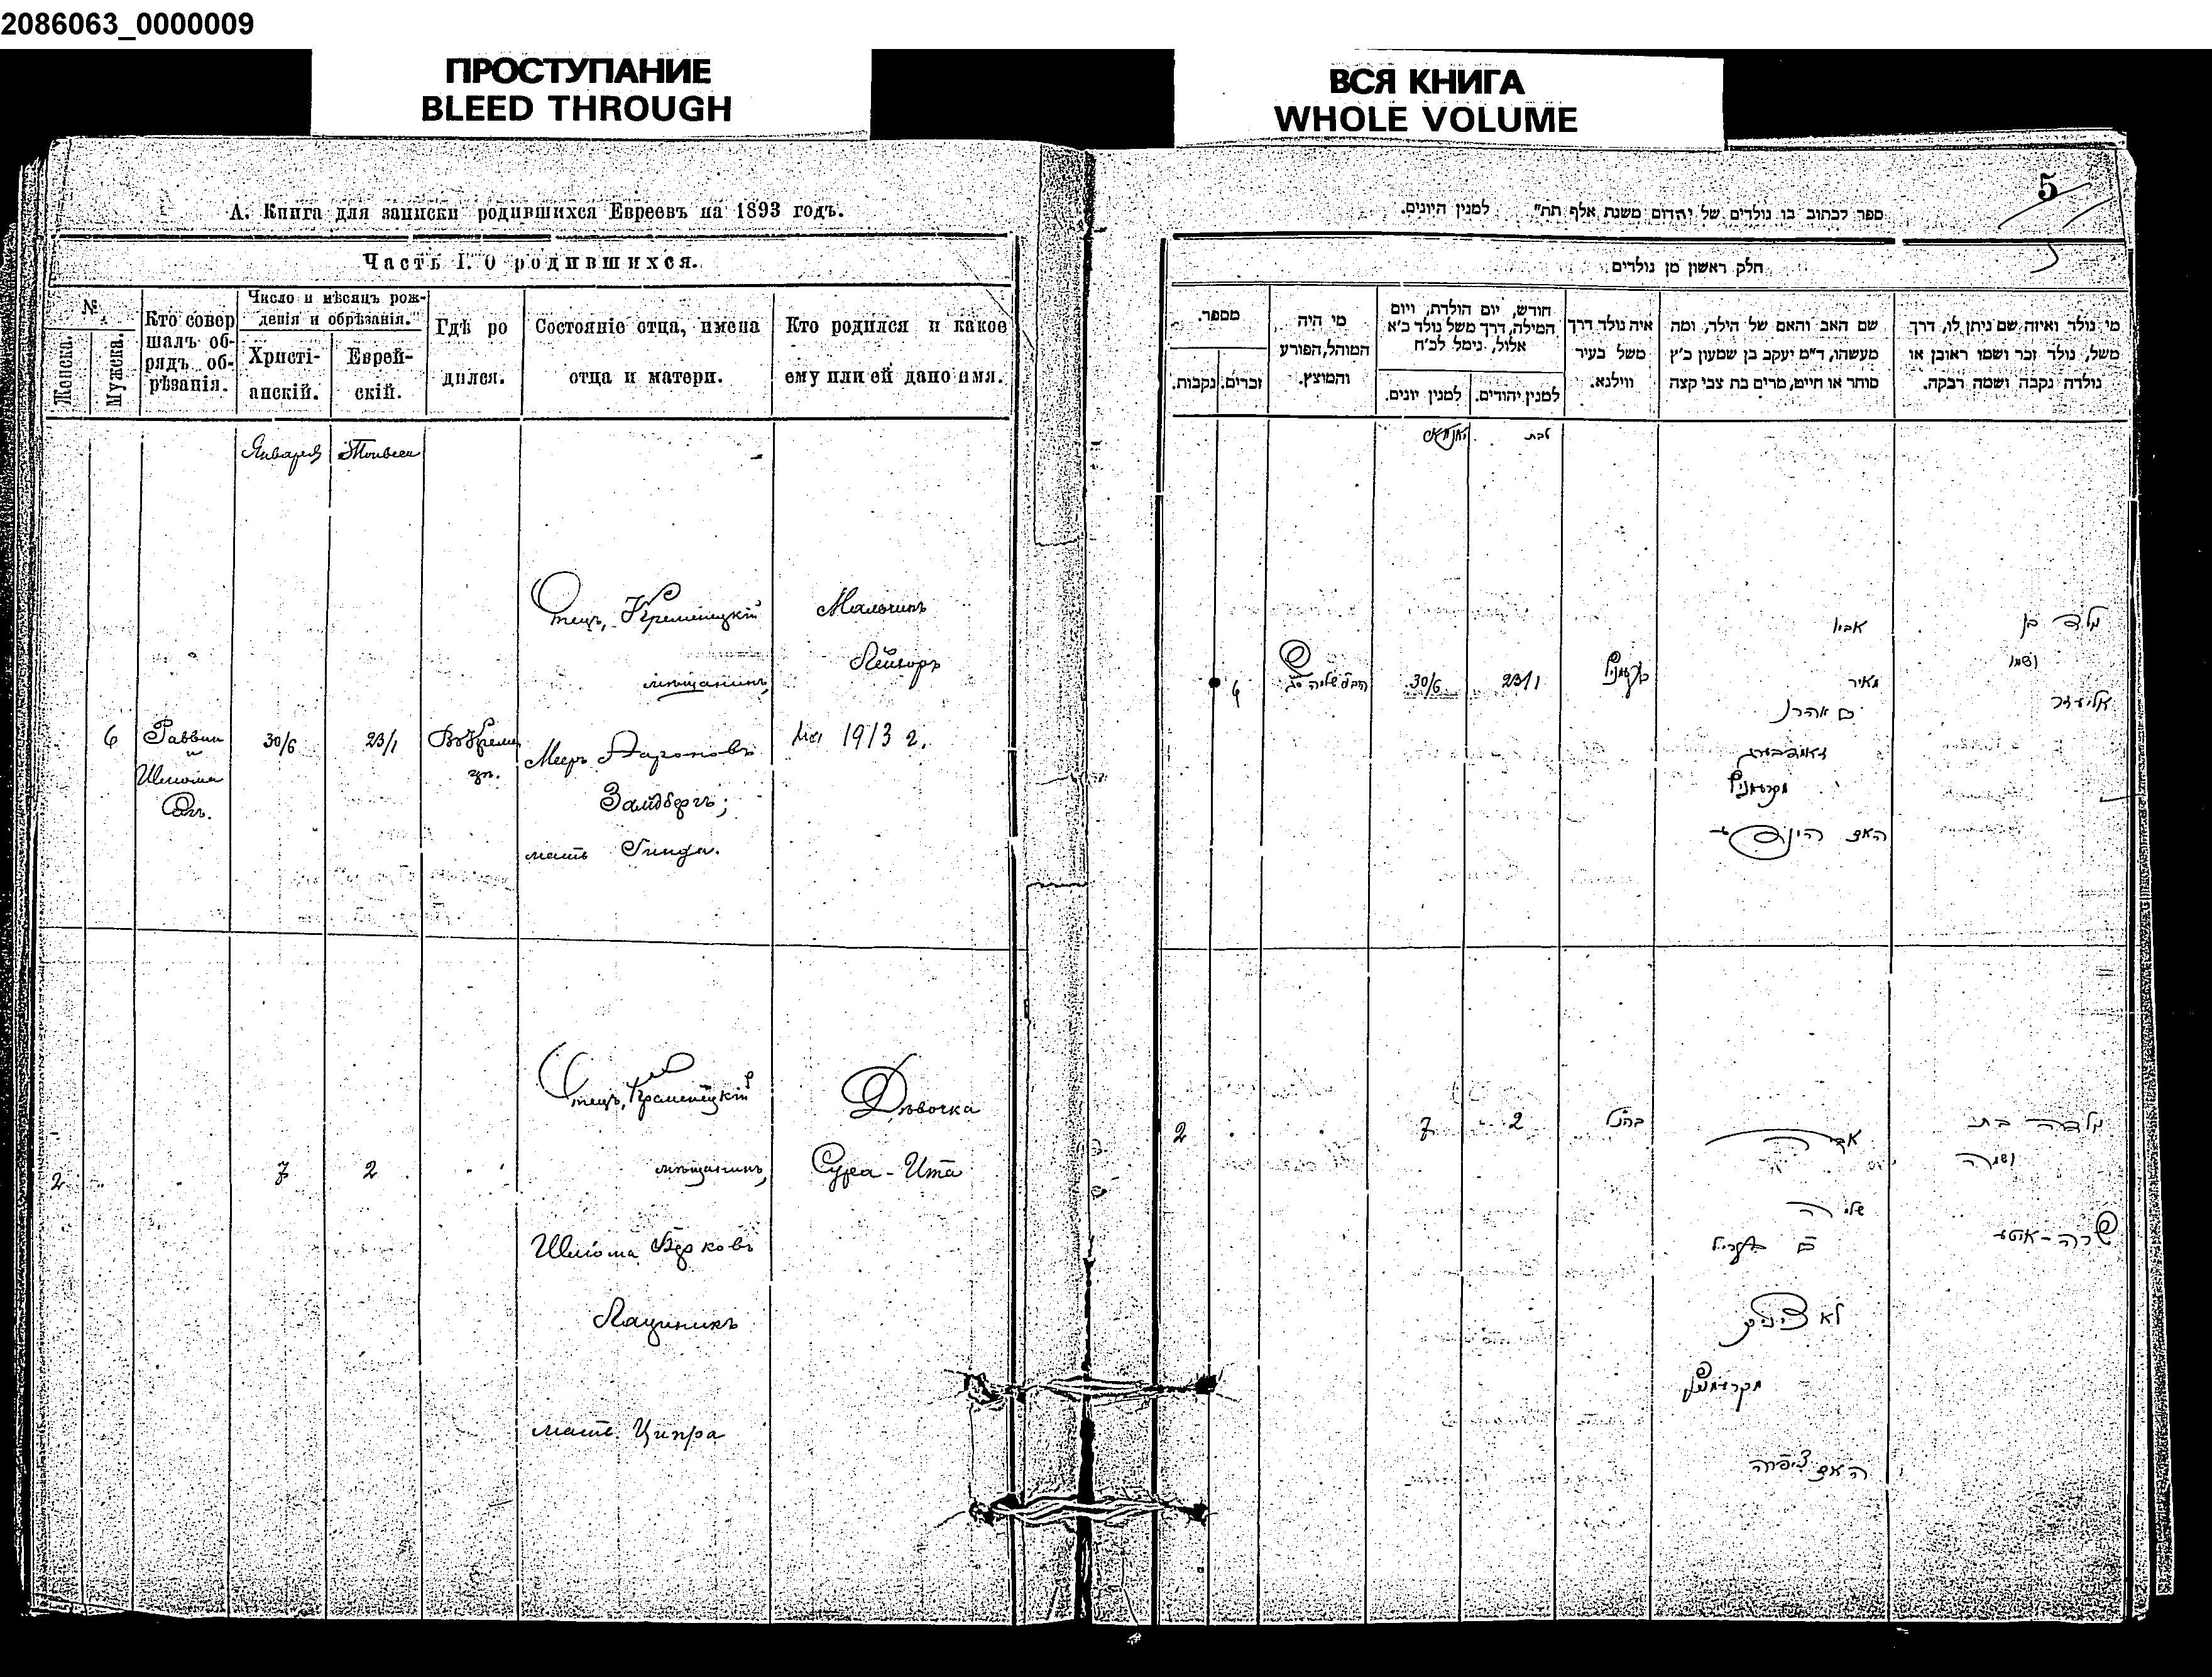 2086063_0000009
ПРОСТУПАНИЕ
BLEED THROUGH
ВСЯ КНИГА
WHOLE VOLUME
А. Книга для записки родившихся Евреевъ на 1893 годъ.
Часть I. О родившихся.
№
Женска.
Мужска.
Кто совер
шалъ об-
рядъ об-
рѣзанія.
Число и мѣсяцъ рож-
денія и обрѣзанія.
Христі-
анскій.
Еврей-
скій.
Гдѣ ро
дился.
Состояніе отца, имена
отца и матери.
Кто родился и какое
ему или ей дано имя.
Января
6
Раввин
и
Шлома
30/6
23/1
Отецъ, Кременецкій
мѣщанинъ,
Мееръ Аароновъ
Зайдбергъ;
мать Гинда.
Мальчикъ
Лейзоръ
1913 г.
2
7
2
Отецъ, Кременецкій
мѣщанинъ,
Шлома Берковъ
Лациникъ
мать Ципра
Дѣвочка
Сура-Ита
5
ספר לכתוב בו נולדים של יהודים משנת אלף תת" למנין היונים.
חלק ראשון מן נולדים
מספר.
נקבות.
זכרים.
מי היה
המוהל, הפורע
והמוצץ.
חודש, יום הולדת, ויום
המילה, דרך משל נולד כ'א
אלול, נימל לכ'ח
למנין יונים.
למנין יהודים.
איה נולד דרך
משל בעיר
ווילנא.
שם האב והאם של הילד, ומה
מעשהו, ד"מ יעקב בן שמעון כ'ץ
סוחר או חייט, מרים בת צבי קצה
מי נולד ואיזה שם ניתן לו, דרך
משל, נולד זכר ושמו ראובן או
נולדה נקבה ושמה רבקה.
טבת
30/6
23/1
אביו
מאיר
אהרן
נולד בן
ושמו
אליעזר
2
7
2
נולדה בת
ושמה
שרה-איטע
האם ציפרה